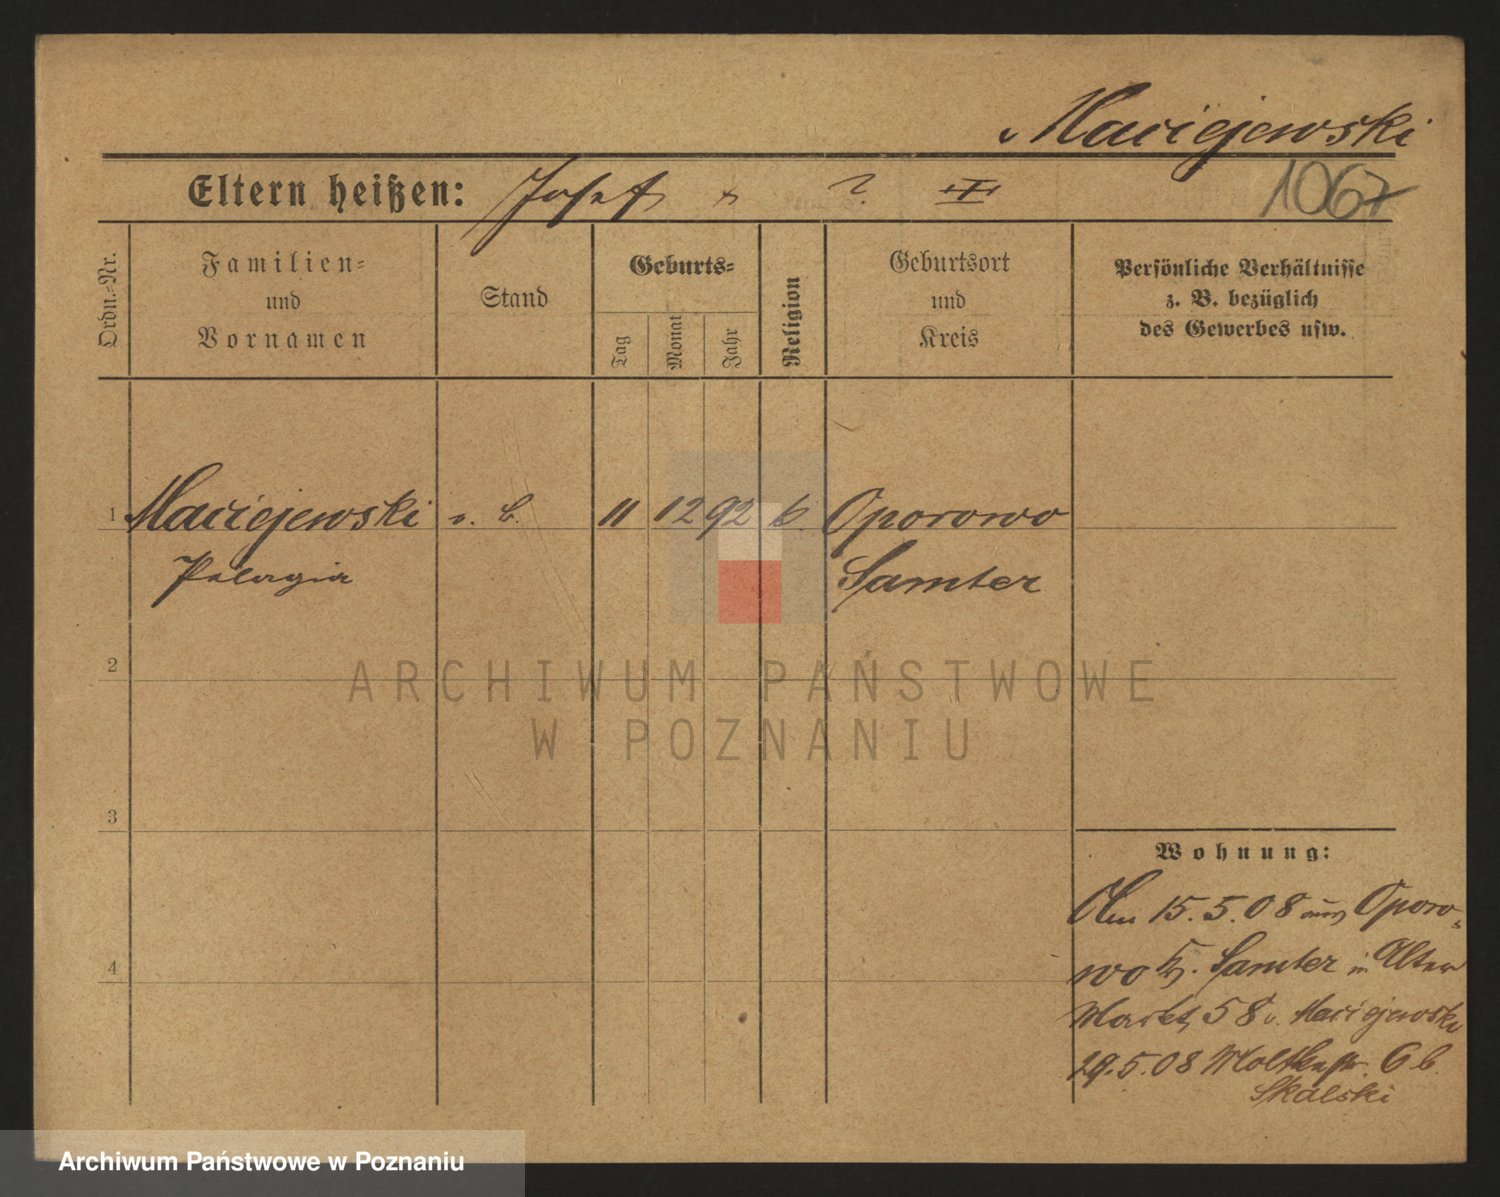 Maciejewski
Eltern heißen: Josef + ? III
1067
Ordn.=Nr.
Familien=
und
Vornamen
Stand
Geburts=
Tag
Monat
Jahr
Religion
Geburtsort
und
Kreis
Persönliche Verhältnisse
z. B. bezüglich
des Gewerbes usw.
1
Maciejewski
Pelagia
11 12 92
Oporowo
Samter
2
3
4
ARCHIWUM PAŃSTWOWE
W POZNANIU
Wohnung:
15.5.08 aus Oporo-
wo Kr. Samter in Alter
Markt 58 b. Maciejewski
29.5.08 Moltkestr. 6 b.
Skalski
Archiwum Państwowe w Poznaniu